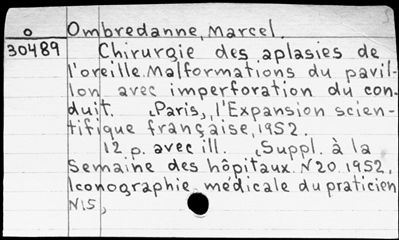 o Ombredanne, Marcel.
30489 Chirurgie des aplasies de
l'oreille. Malformations du pavil-
lon avec imperforation du con-
duit. Paris, l'Expansion scien-
tifique française, 1952.
12 p. avec ill. Suppl. à la
Semaine des hôpitaux. N 20. 1952.
Iconographie medicale du praticien
N 15,